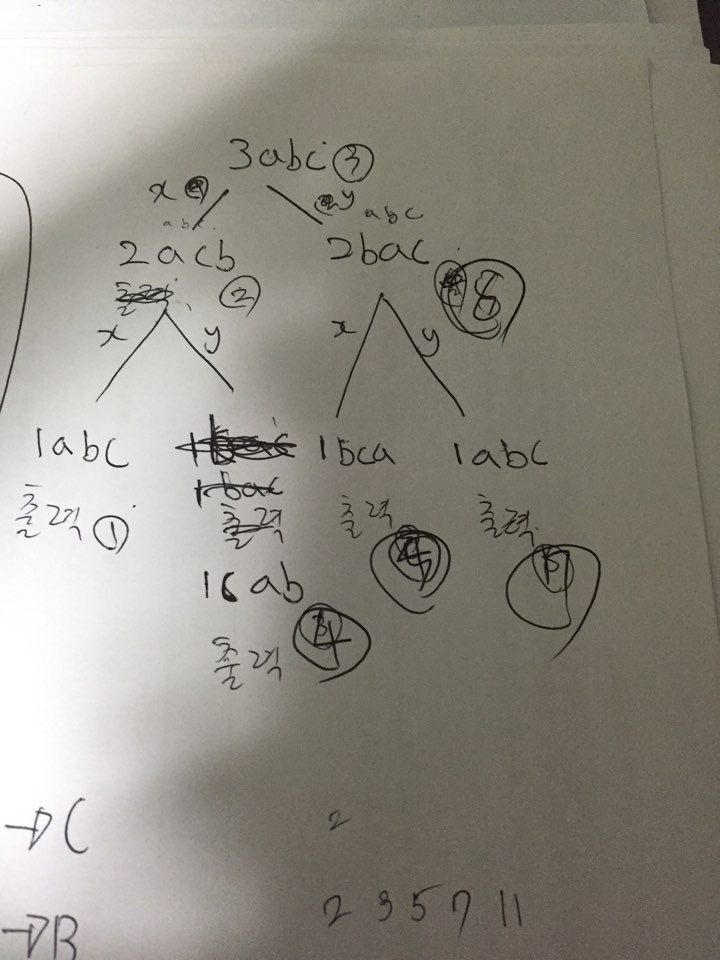 3abc ③
x y
abc abc
2acb 2bac
② 6
x y x y
1abc 1bca 1abc
1bac
출력 ① 출력 출력 출력
5 7
1cab
출력 4
→C 2
→B 2 3 5 7 11